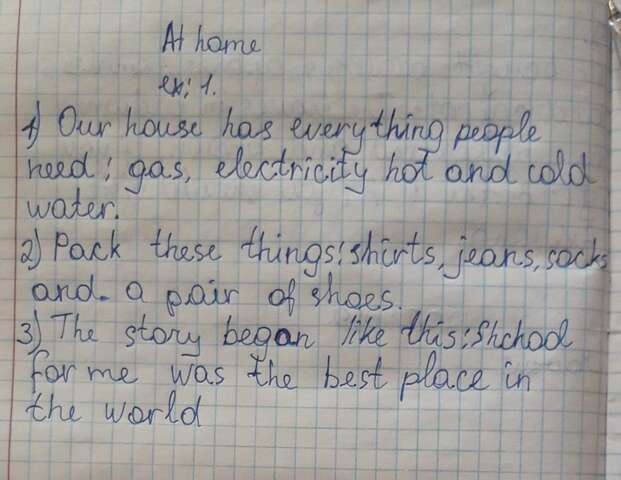 At home
ex: 1.
1) Our house has everything people
need: gas, electricity hot and cold
water.
2) Pack these things: shirts, jeans, socks
and a pair of shoes.
3) The story began like this: Shchool
for me was the best place in
the world